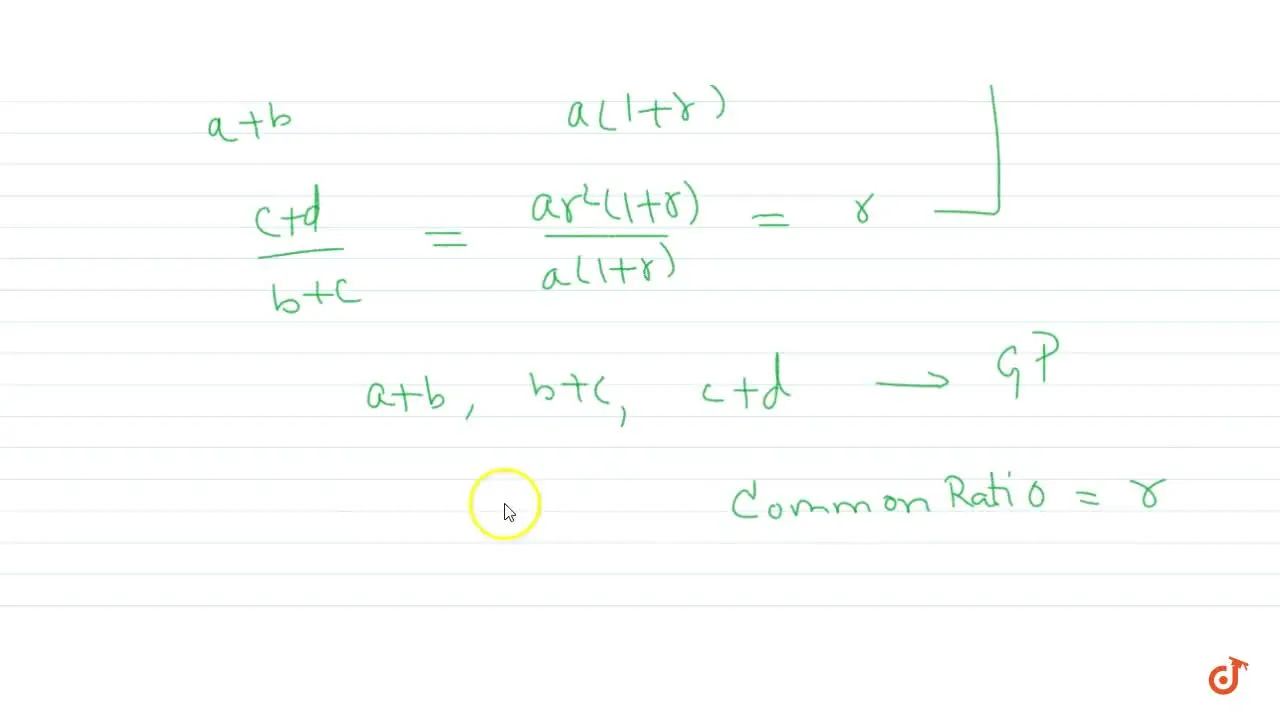 a+b a(1+r)
c+d/b+c = ar²(1+r)/a(1+r) = r
a+b, b+c, c+d → GP
Common Ratio = r